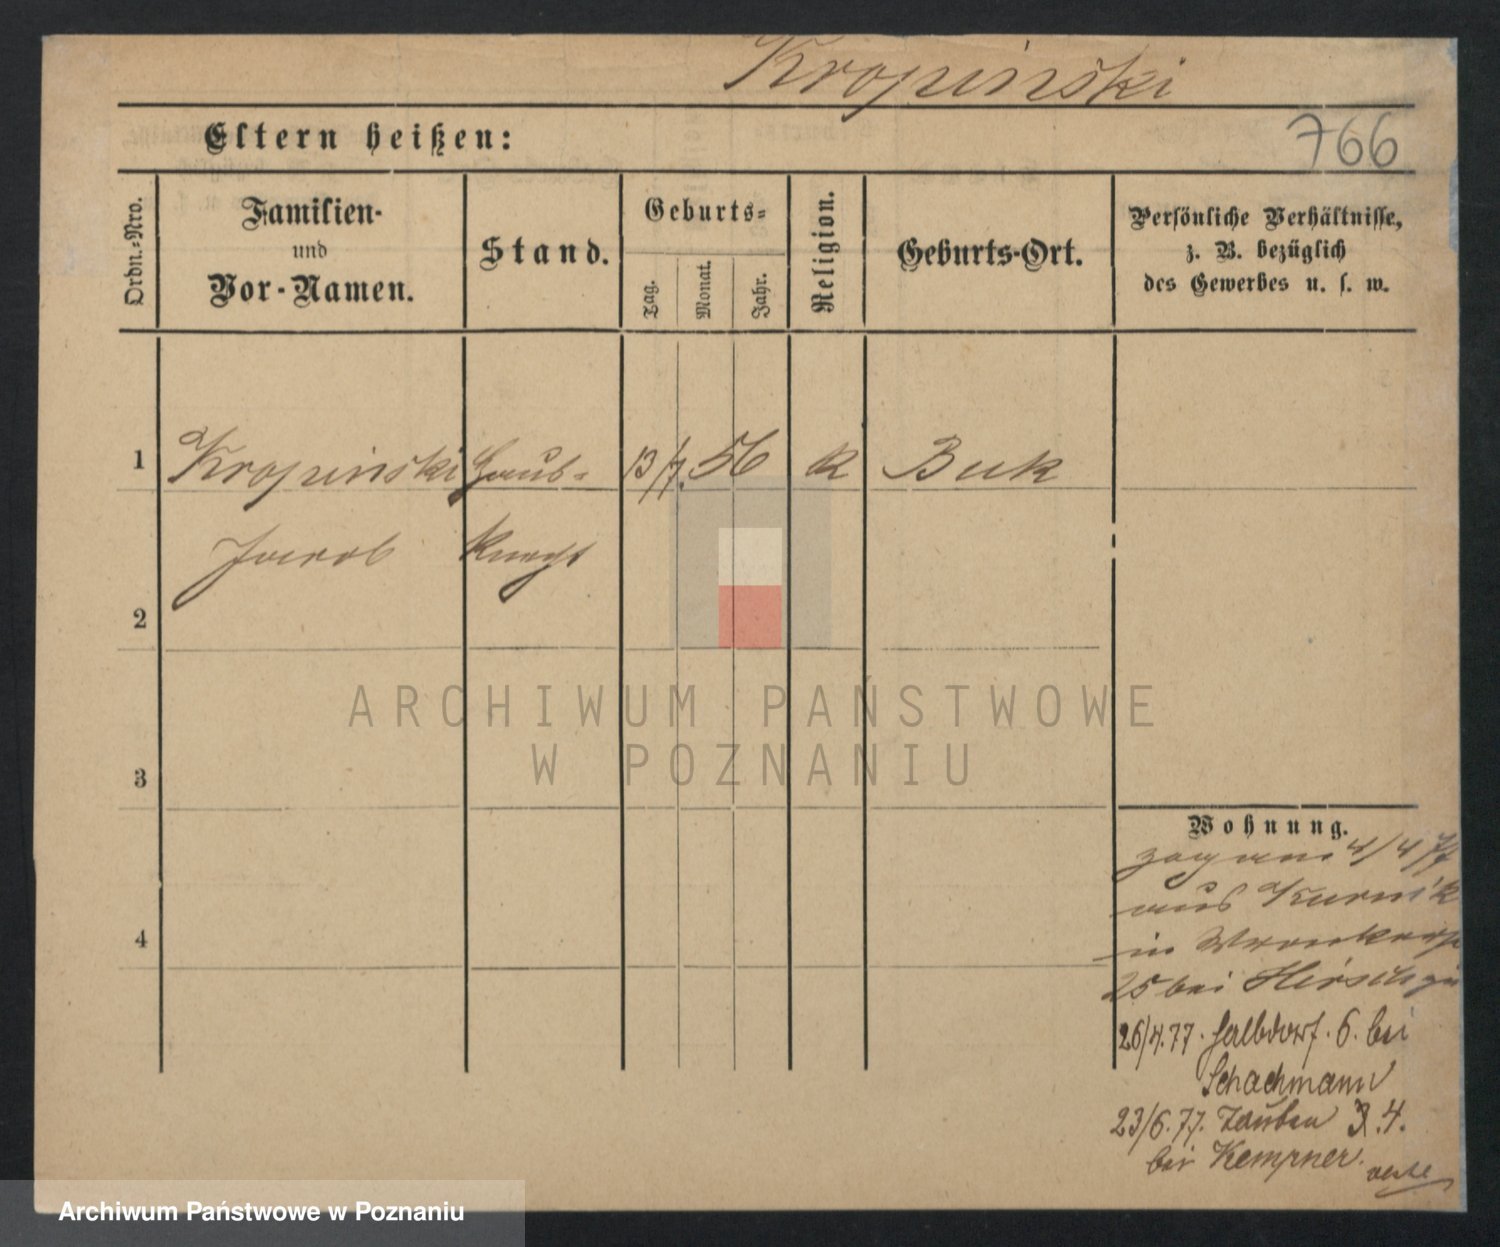 Kropinski
Eltern heißen:
766
Ordn.-Nro.
Familien-
und
Vor-Namen.
Stand.
Geburts-
Tag.
Monat.
Jahr.
Religion.
Geburts-Ort.
Persönliche Verhältnisse,
z. B. bezüglich
des Gewerbes u. s. w.
1 Kropinski Haus- 13/7. 56 K Buk
Jacob knecht
2
3
4
ARCHIWUM PAŃSTWOWE
W POZNANIU
Wohnung.
zog am 4/4 77
aus Kurnik
in Wronkerstr
25 bei Hirsch
26/4.77. Halbdorf. 6. bei
Schachmann
23/6.77. Tauben 3.4.
bei Kempner.
verte
Archiwum Państwowe w Poznaniu